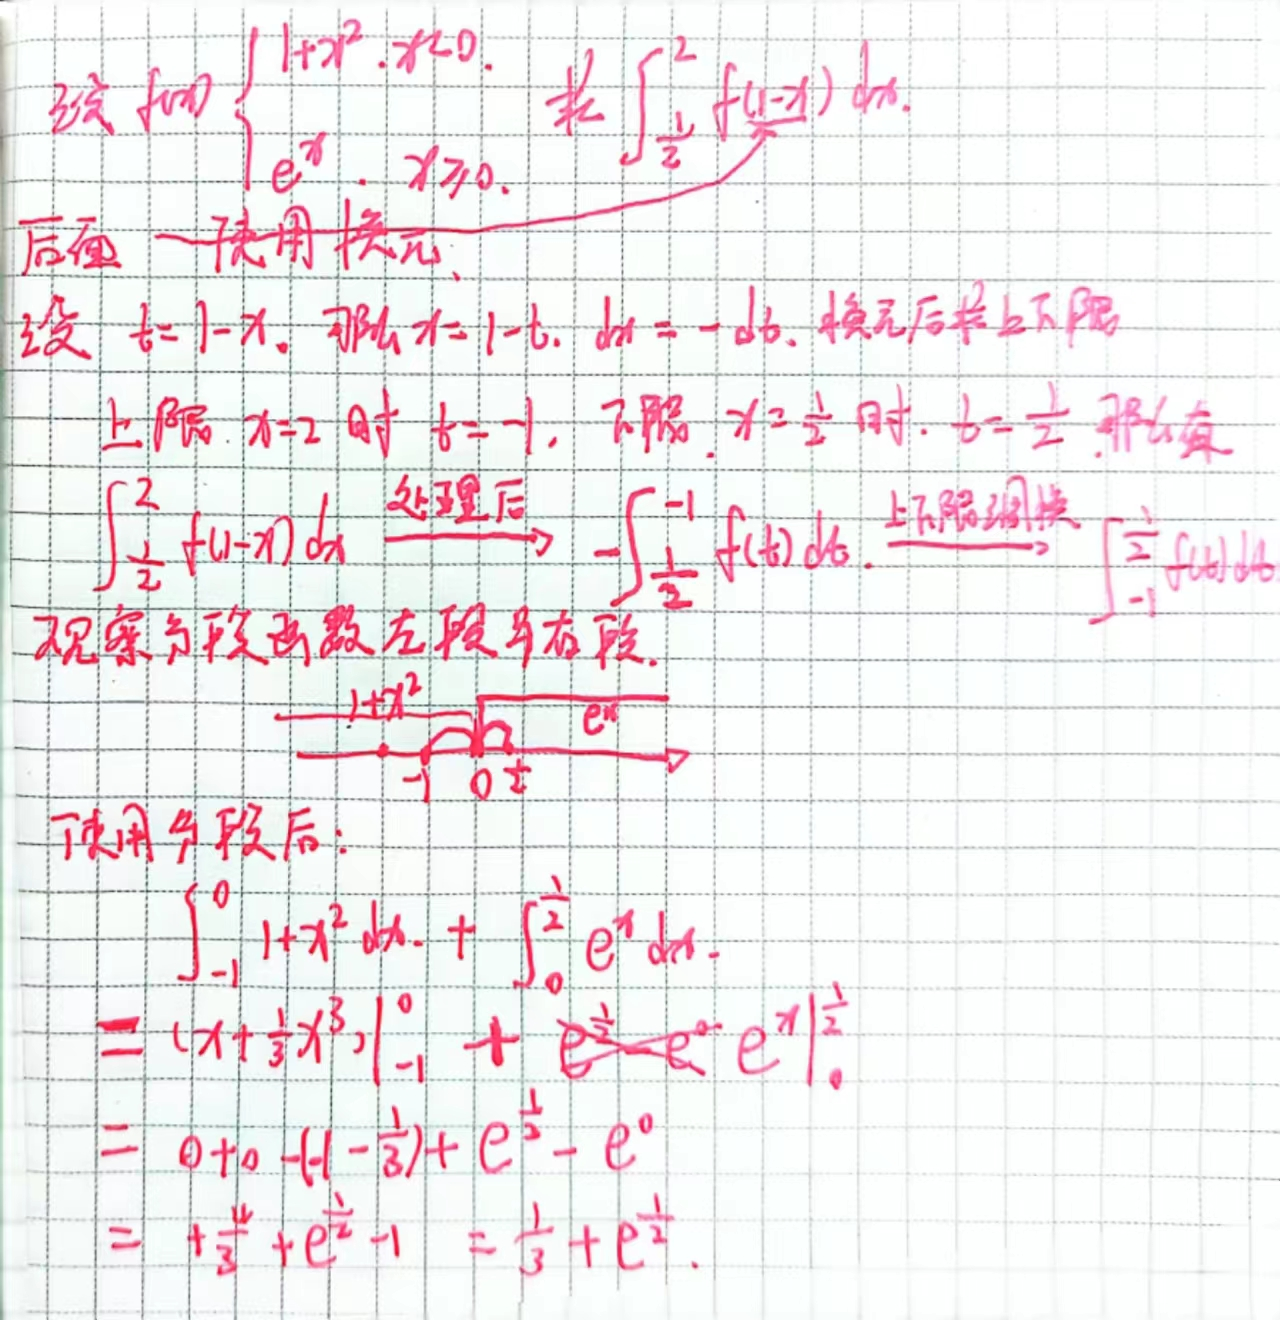 设 f(x) { 1+x², x<0. 求 ∫_{1/2}^{2} f(1-x) dx.
e^x, x≥0.
后面 使用换元.
设 t=1-x. 那么 x=1-t. dx=-dt. 换元后 上下限
上限 x=2 时 t=-1. 下限. x=1/2 时. t=1/2. 那么有
∫_{1/2}^{2} f(1-x) dx 处理后→ -∫_{1/2}^{-1} f(t) dt. 上下限调换→ ∫_{-1}^{1/2} f(t) dt
观察分段函数左段与右段.
1+x² e^x
-1 0 1/2
使用分段后:
∫_{-1}^{0} 1+x² dx. + ∫_{0}^{1/2} e^x dx.
= (x+1/3x³)|_{-1}^{0} + e^{1/2}-e^0 e^x|_{0}^{1/2}
= 0+0-(-1-1/3)+e^{1/2}-e^0
= +4/3+e^{1/2}-1 = 1/3+e^{1/2}.